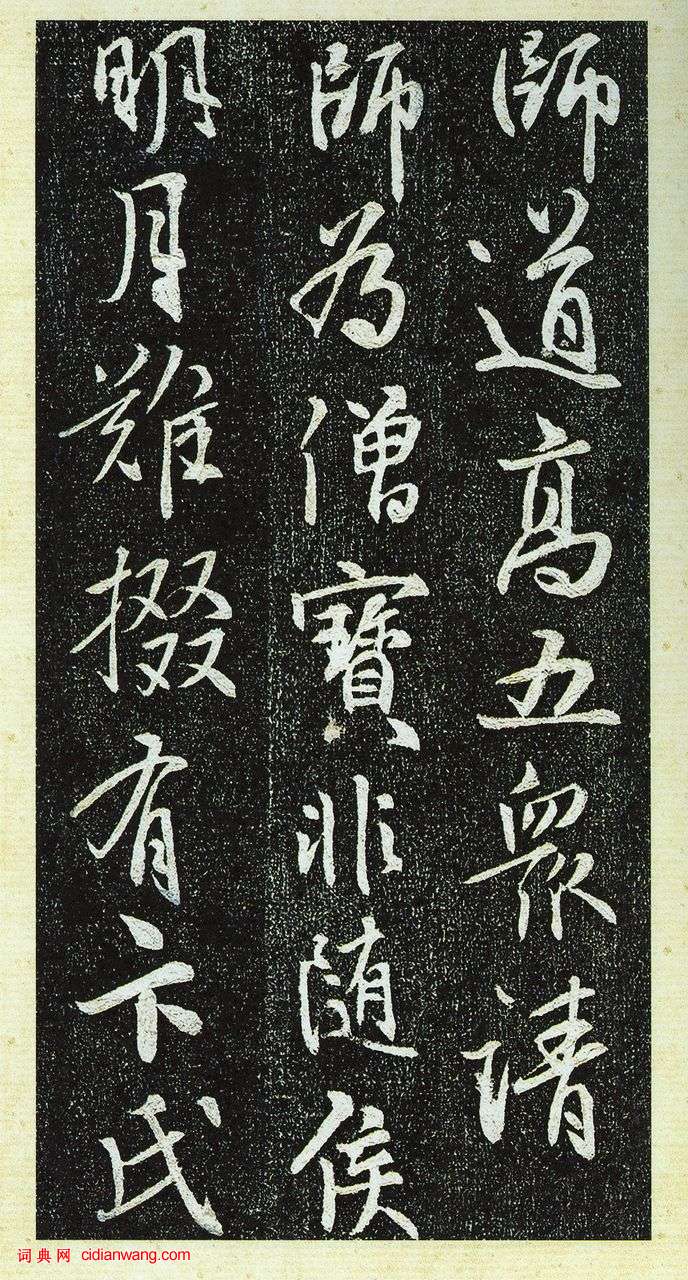 師道高五衆請
師為僧寶非随侯
明月難掇有卞氏
词典网 cidianwang.com